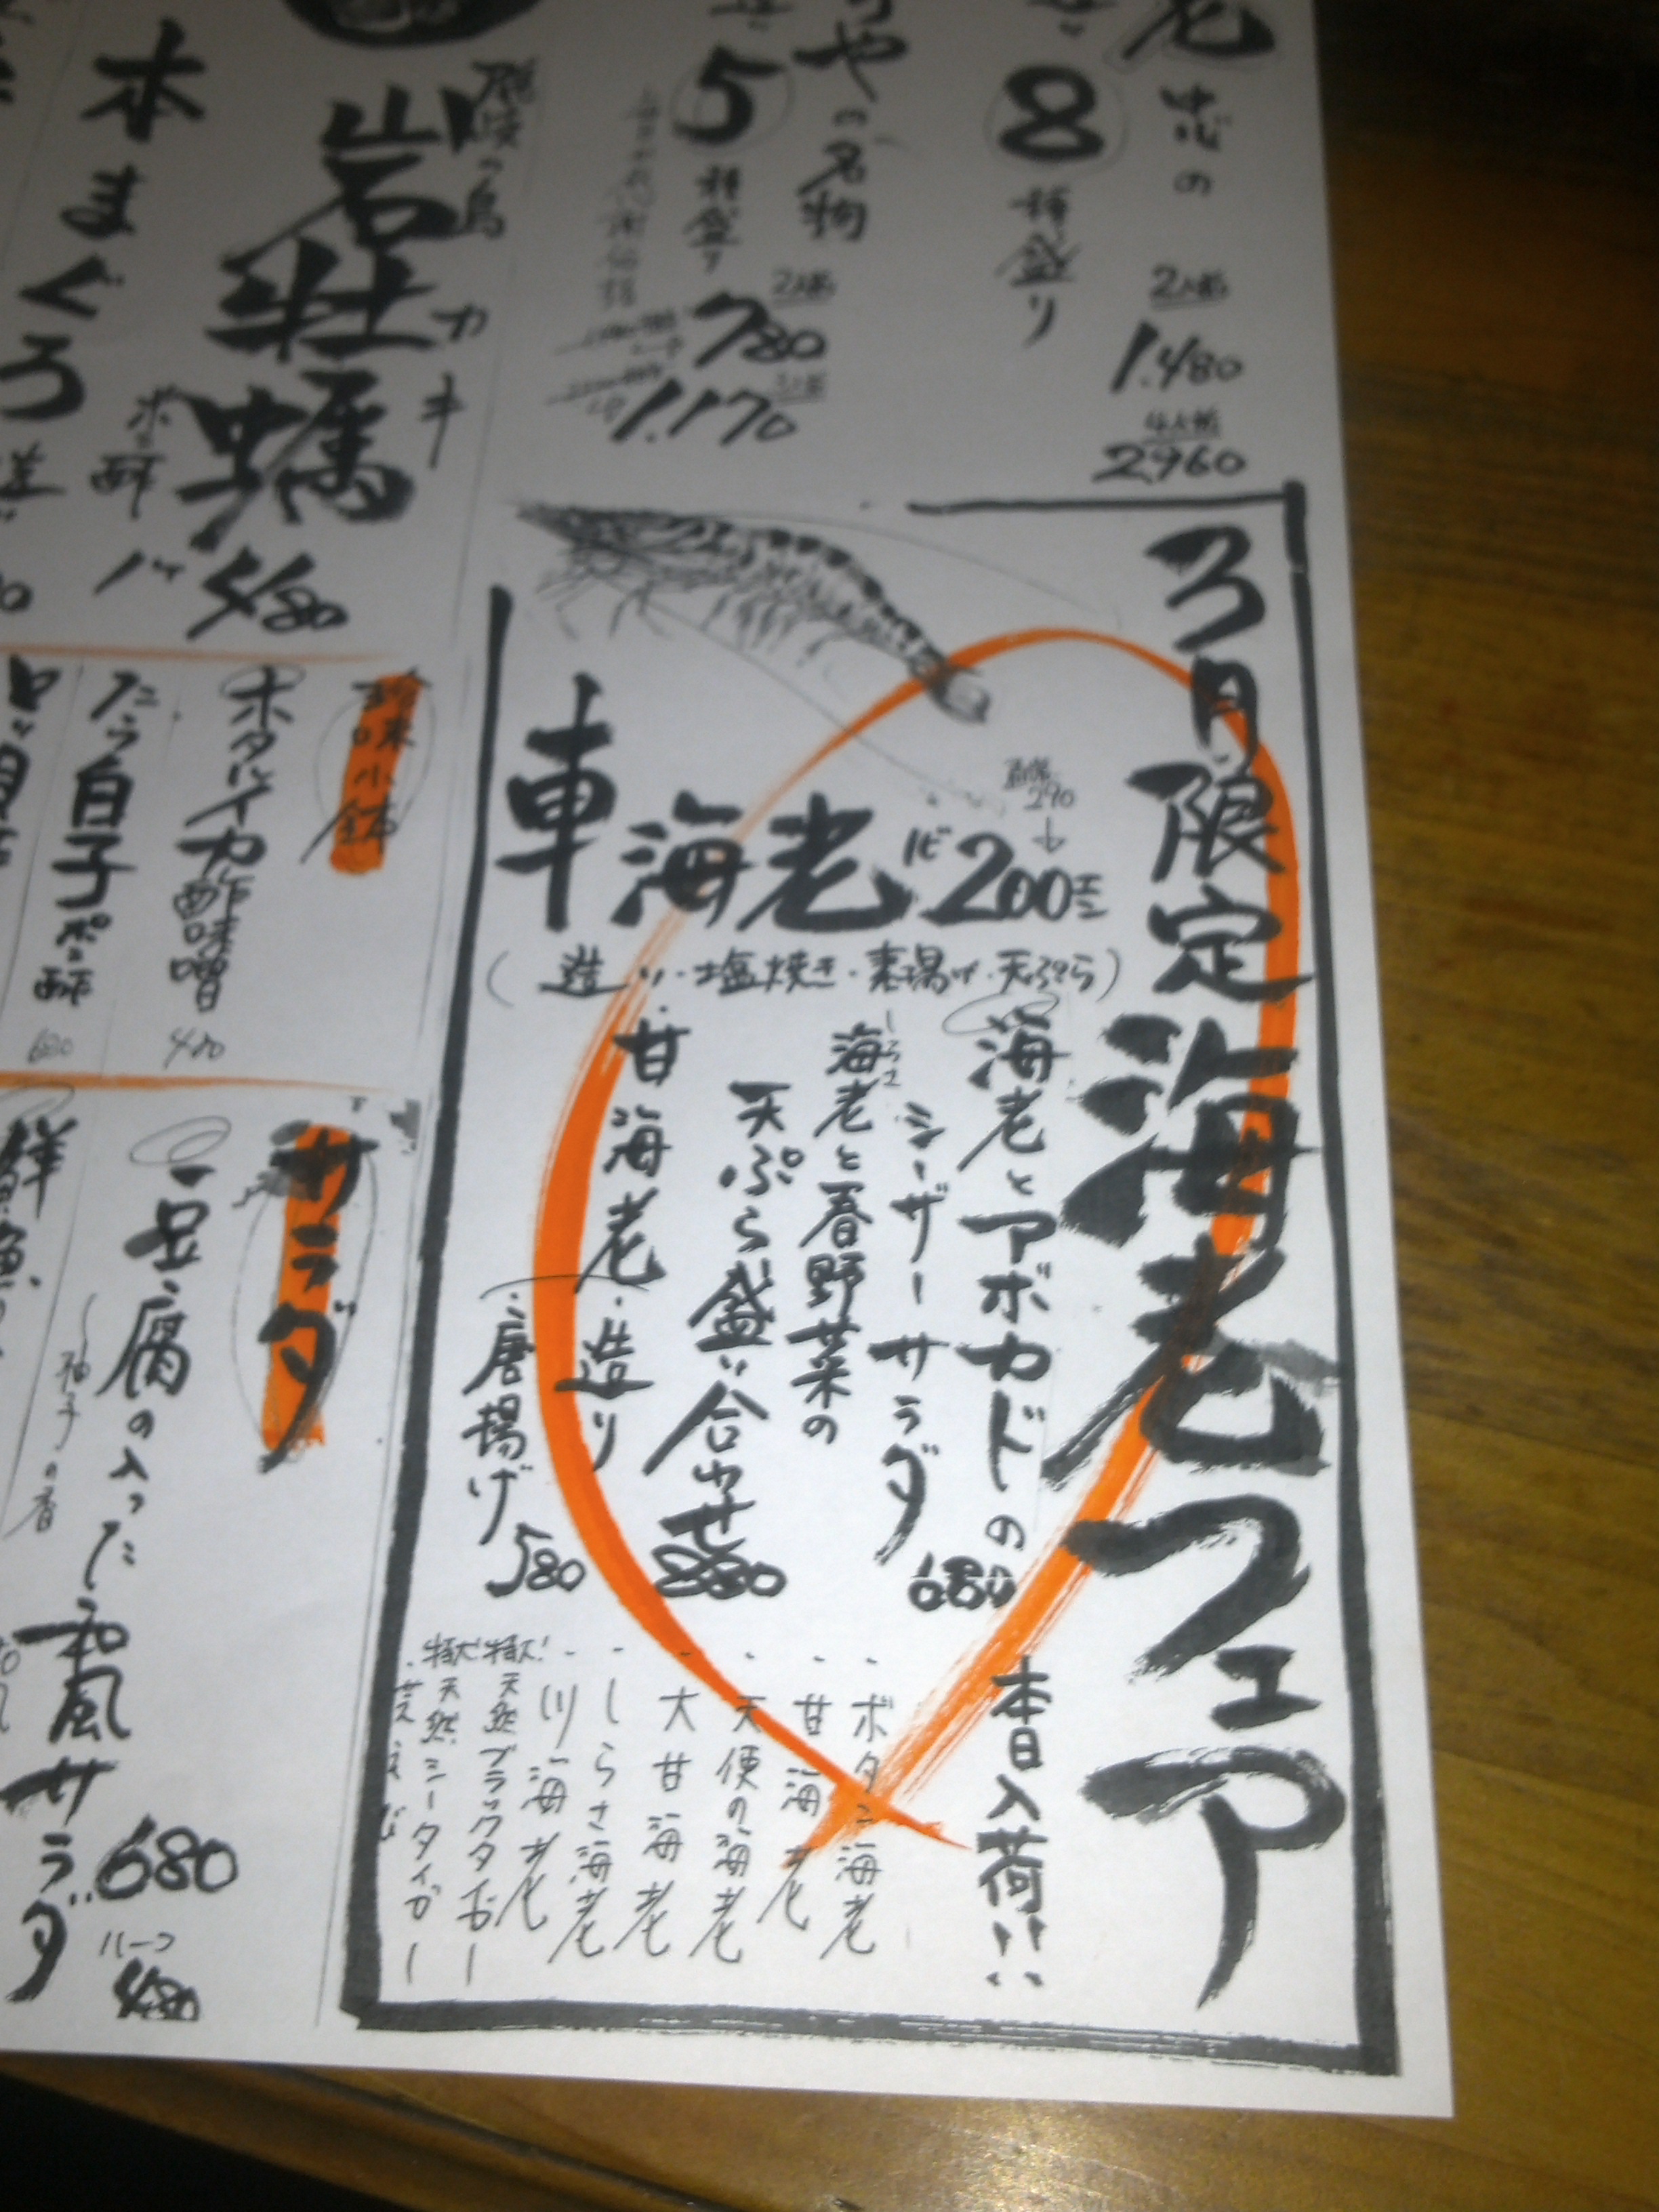 忠の
8
種盛り
2人前
1.480
4人前
2960
やの名物
5
種盛り
2人前
780
3人前
1.170
隠岐の島
岩牡蠣
カキ
480
ポン酢
本まぐろ
3月限定海老フェア
車海老
1ピ200エン
290
(造り・塩焼き・素揚げ・天ぷら)
海老とアボカドの
シーザーサラダ
680
海老と春野菜の
天ぷら盛り合わせ
880
甘海老・造り
・唐揚げ
580
本日入荷!!
・ボタン海老
・甘海老
・天使の海老
・大甘海老
・しらさ海老
・川海老
特大!天然ブラックタイガー
特大!天然シータイガー
・芝えび
珍味小鉢
ホタルイカ酢味噌
480
たら白子ポン酢
680
サラダ
豆腐の入った和風サラダ
680
ハーフ
480
柚子の香